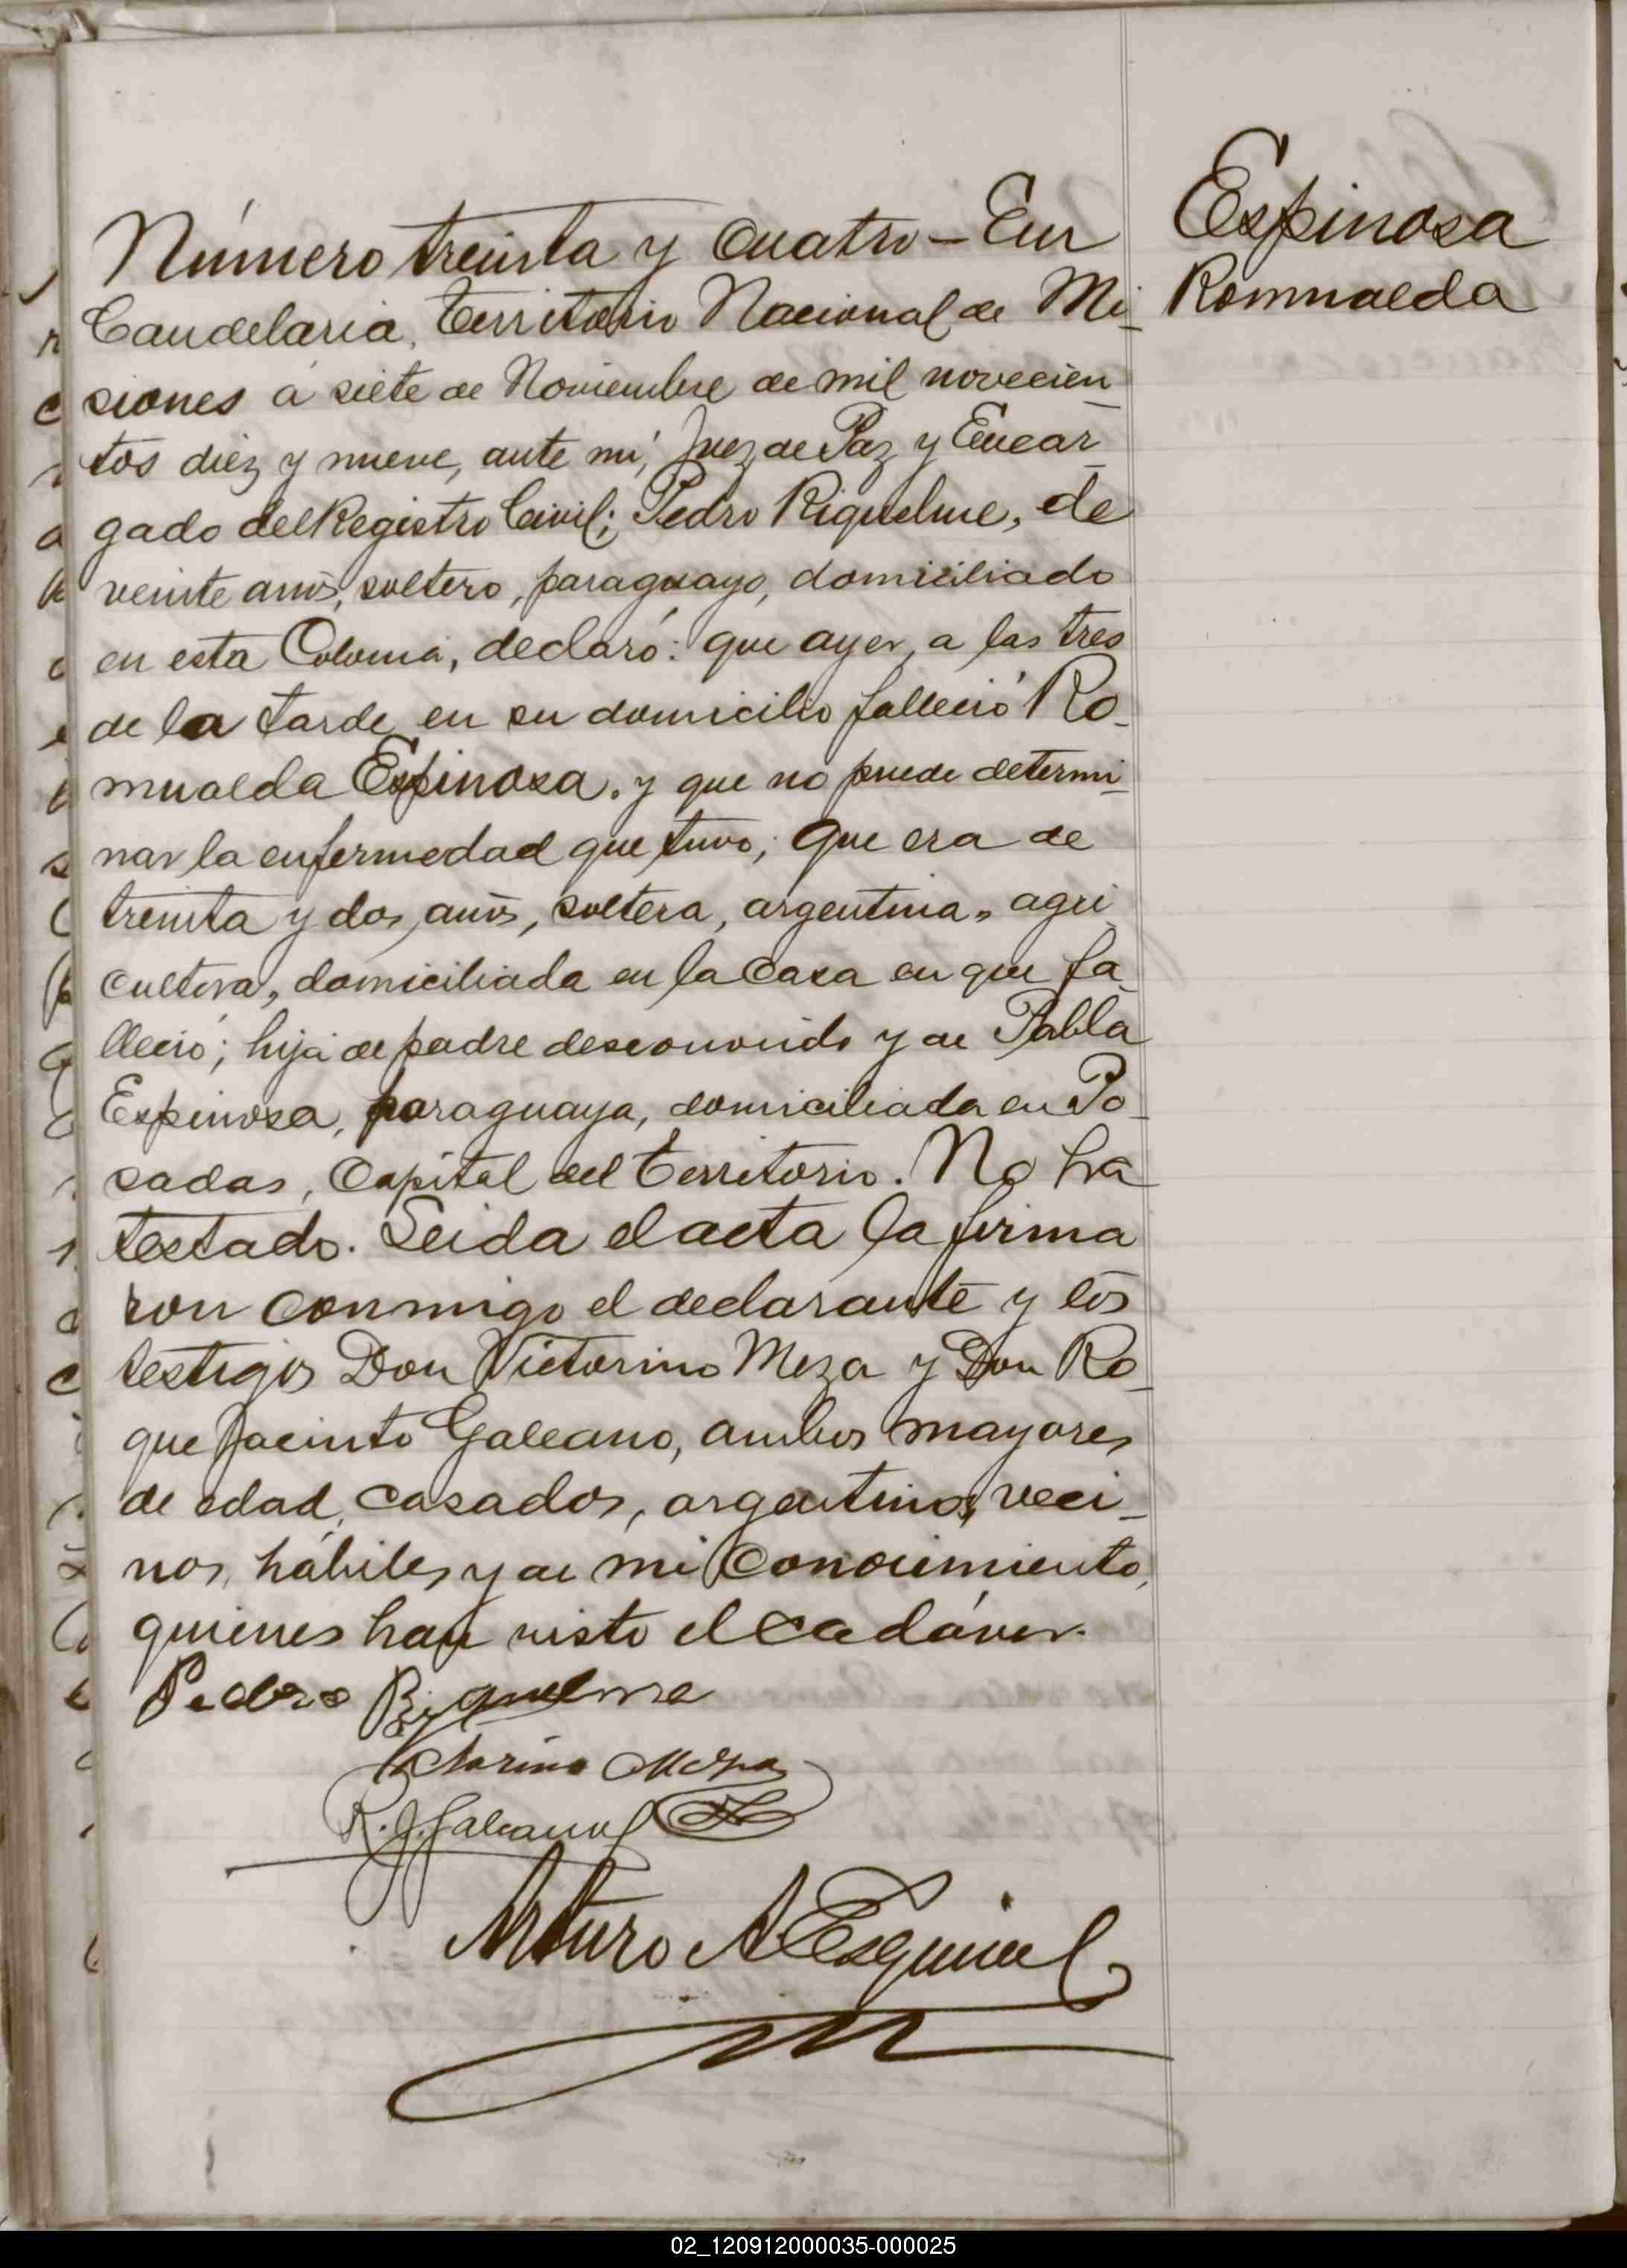 Espinosa
Romualda
Número treinta y cuatro - En
Candelaria, Territorio Nacional de Mi-
siones á siete de Noviembre de mil novecien-
tos diez y nueve, ante mí, Juez de Paz y Encar-
gado del Registro Civil; Pedro Riquelme, de
veinte años, soltero, paraguayo, domiciliado
en esta Colonia, declaró: que ayer, a las tres
de la tarde en su domicilio falleció Ro-
mualda Espinosa. y que no puede determi-
nar la enfermedad que tuvo; que era de
treinta y dos años, soltera, argentina, agri-
cultora, domiciliada en la casa en que fa-
lleció; hija de padre desconocido y de Pabla
Espinosa, paraguaya, domiciliada en Po-
sadas, Capital del territorio. No ha
testado. Leida el acta la firma
ron conmigo el declarante y los
testigos Don Victorino Meza y Don Ro-
que Jacinto Galeano, ambos mayores
de edad, casados, argentinos, veci-
nos, hábiles y de mi conocimiento,
quienes han visto el cadáver.
Pedro Riquelme
Victorino Meza
R. J. Galeano
Arturo A Esquivel
02_120912000035-000025